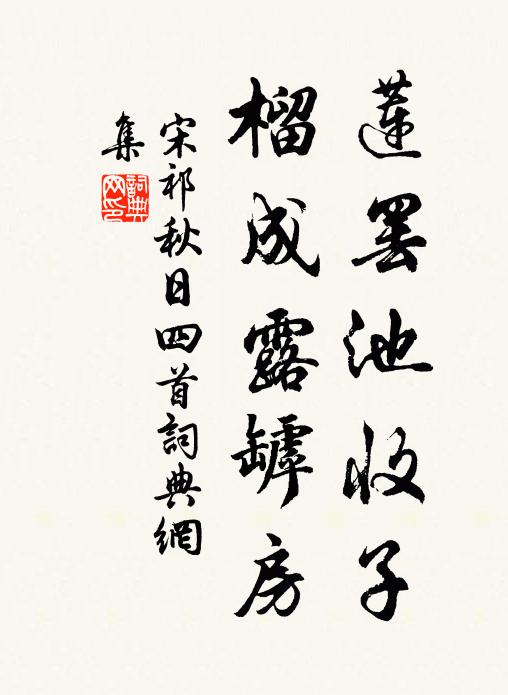 蓮罷池收子
榴成露罅房
宋祁秋日四首詞典網
集
詞典网印